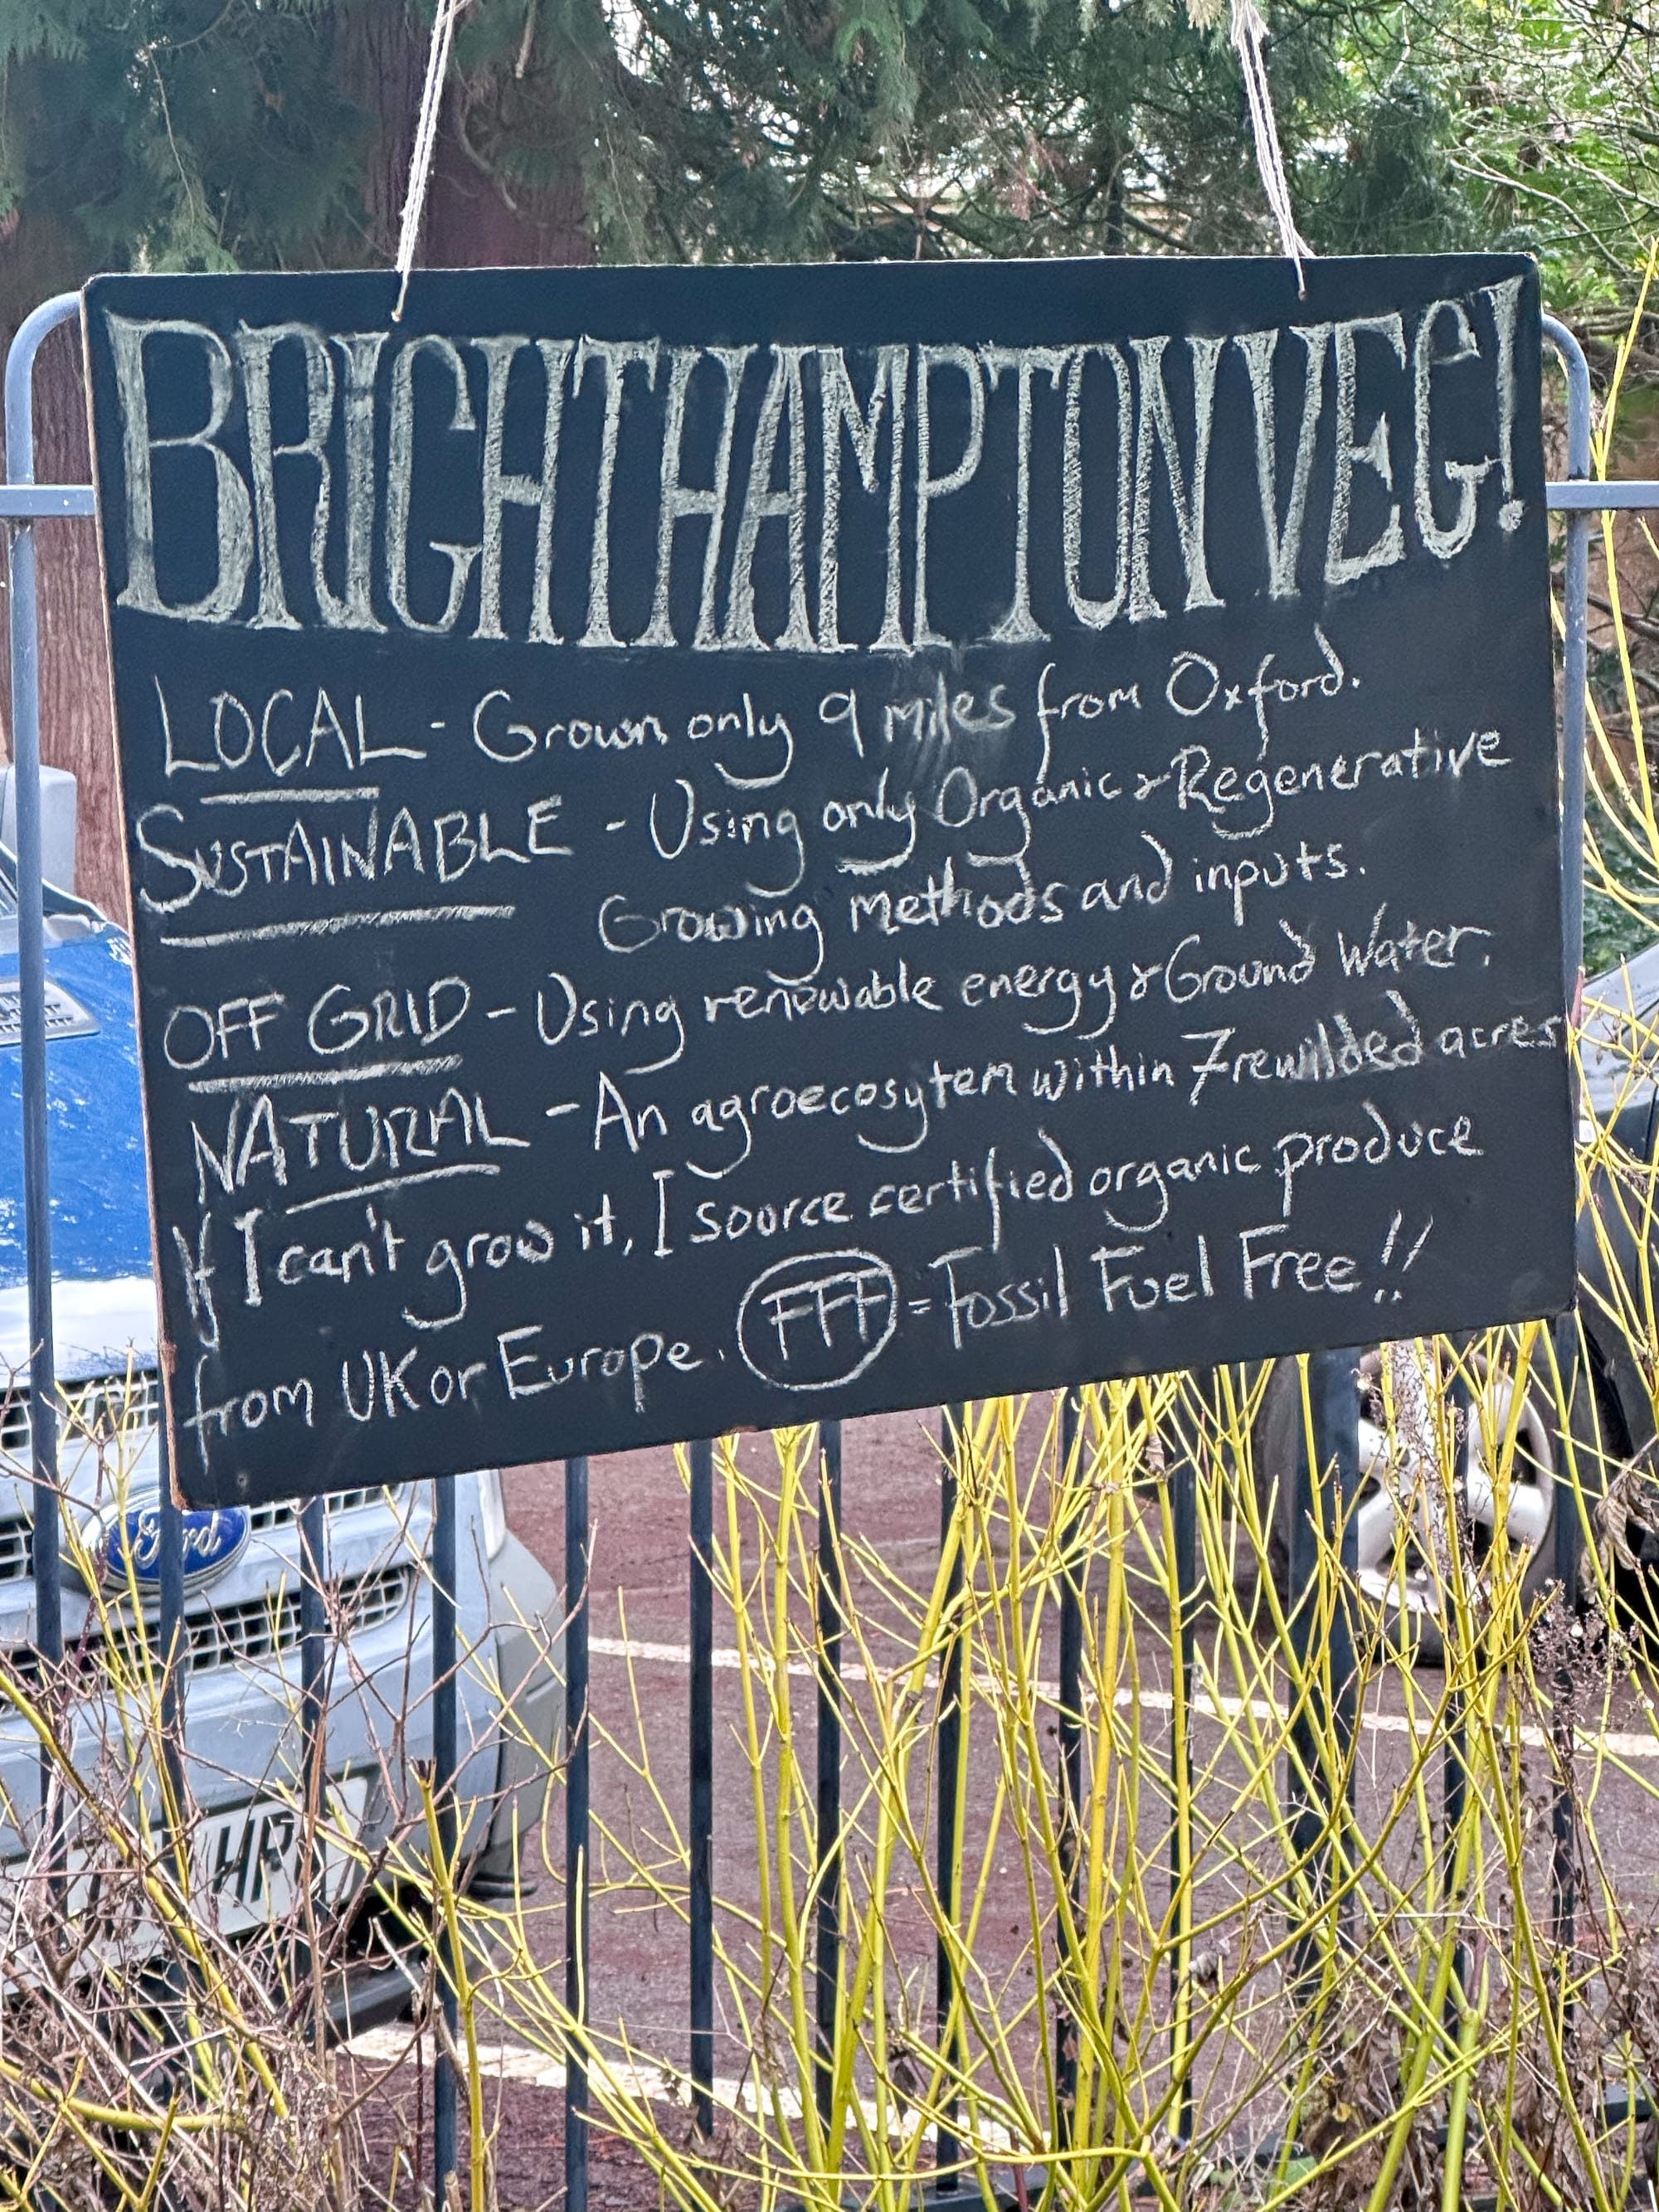 BRIGHTHAMPTON VEG!
LOCAL - Grown only 9 miles from Oxford.
SUSTAINABLE - Using only Organic & Regenerative
Growing methods and inputs.
OFF GRID - Using renewable energy & Ground Water.
NATURAL - An agroecosytem within 7 rewilded acres
If I can't grow it, I source certified organic produce
from UK or Europe. FFF = Fossil Fuel Free!!
Ford
HP